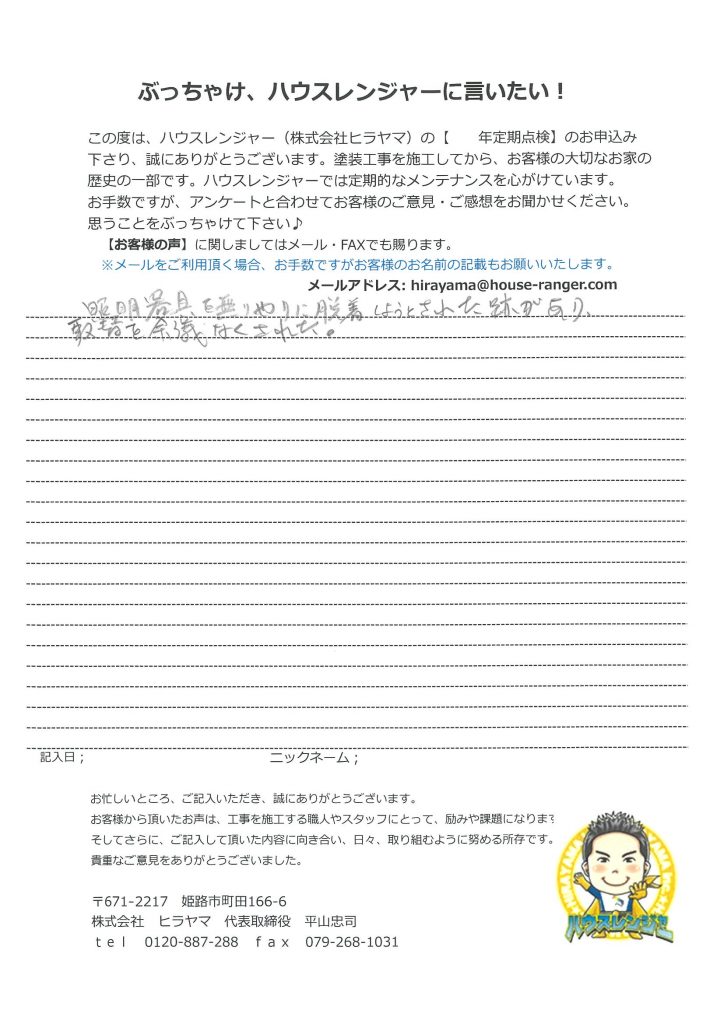 ぶっちゃけ、ハウスレンジャーに言いたい！
この度は、ハウスレンジャー（株式会社ヒラヤマ）の【　　年定期点検】のお申込み
下さり、誠にありがとうございます。塗装工事を施工してから、お客様の大切なお家の
歴史の一部です。ハウスレンジャーでは定期的なメンテナンスを心がけています。
お手数ですが、アンケートと合わせてお客様のご意見・ご感想をお聞かせください。
思うことをぶっちゃけて下さい♪
【お客様の声】に関しましてはメール・FAXでも賜ります。
※メールをご利用頂く場合、お手数ですがお客様のお名前の記載もお願いいたします。
メールアドレス: hirayama@house-ranger.com
照明器具を無りやりに脱着しようとされた跡があり、
取替を余儀なくされた。
記入日；
ニックネーム；
お忙しいところ、ご記入いただき、誠にありがとうございます。
お客様から頂いたお声は、工事を施工する職人やスタッフにとって、励みや課題になります
そしてさらに、ご記入して頂いた内容に向き合い、日々、取り組むように努める所存です。
貴重なご意見をありがとうございました。
〒671-2217　姫路市町田166-6
株式会社　ヒラヤマ　代表取締役　平山忠司
ｔｅｌ　0120-887-288　ｆａｘ　079-268-1031
ハウスレンジャー